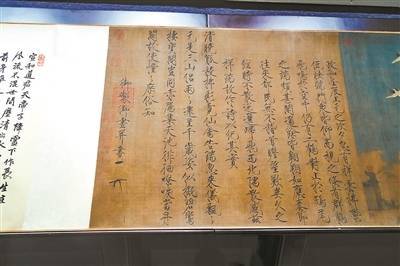 政和壬辰上元之次夕忽有祥雲拂鬱
低映端門眾皆仰而視之倏有群鶴
飛鳴於空中仍有二鶴對止於鴟尾
之端頗甚閒適餘皆翱翔如應奏節
往來都民無不稽首瞻望歎異久之
經時不散迤邐歸飛西北隅散感茲
祥瑞故作詩以紀其實
清曉觚稜拂彩霓仙禽告瑞忽來儀飄飄
元是三山侶兩兩還呈千歲姿似擬碧鸞
棲寶閣豈同赤鴈集天池徘徊嘹唳當丹
闕故使憧憧庶俗知
御製御畫并書
宣和道君